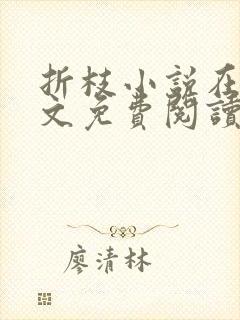 折枝小说在
文免費閱讀
廖清林